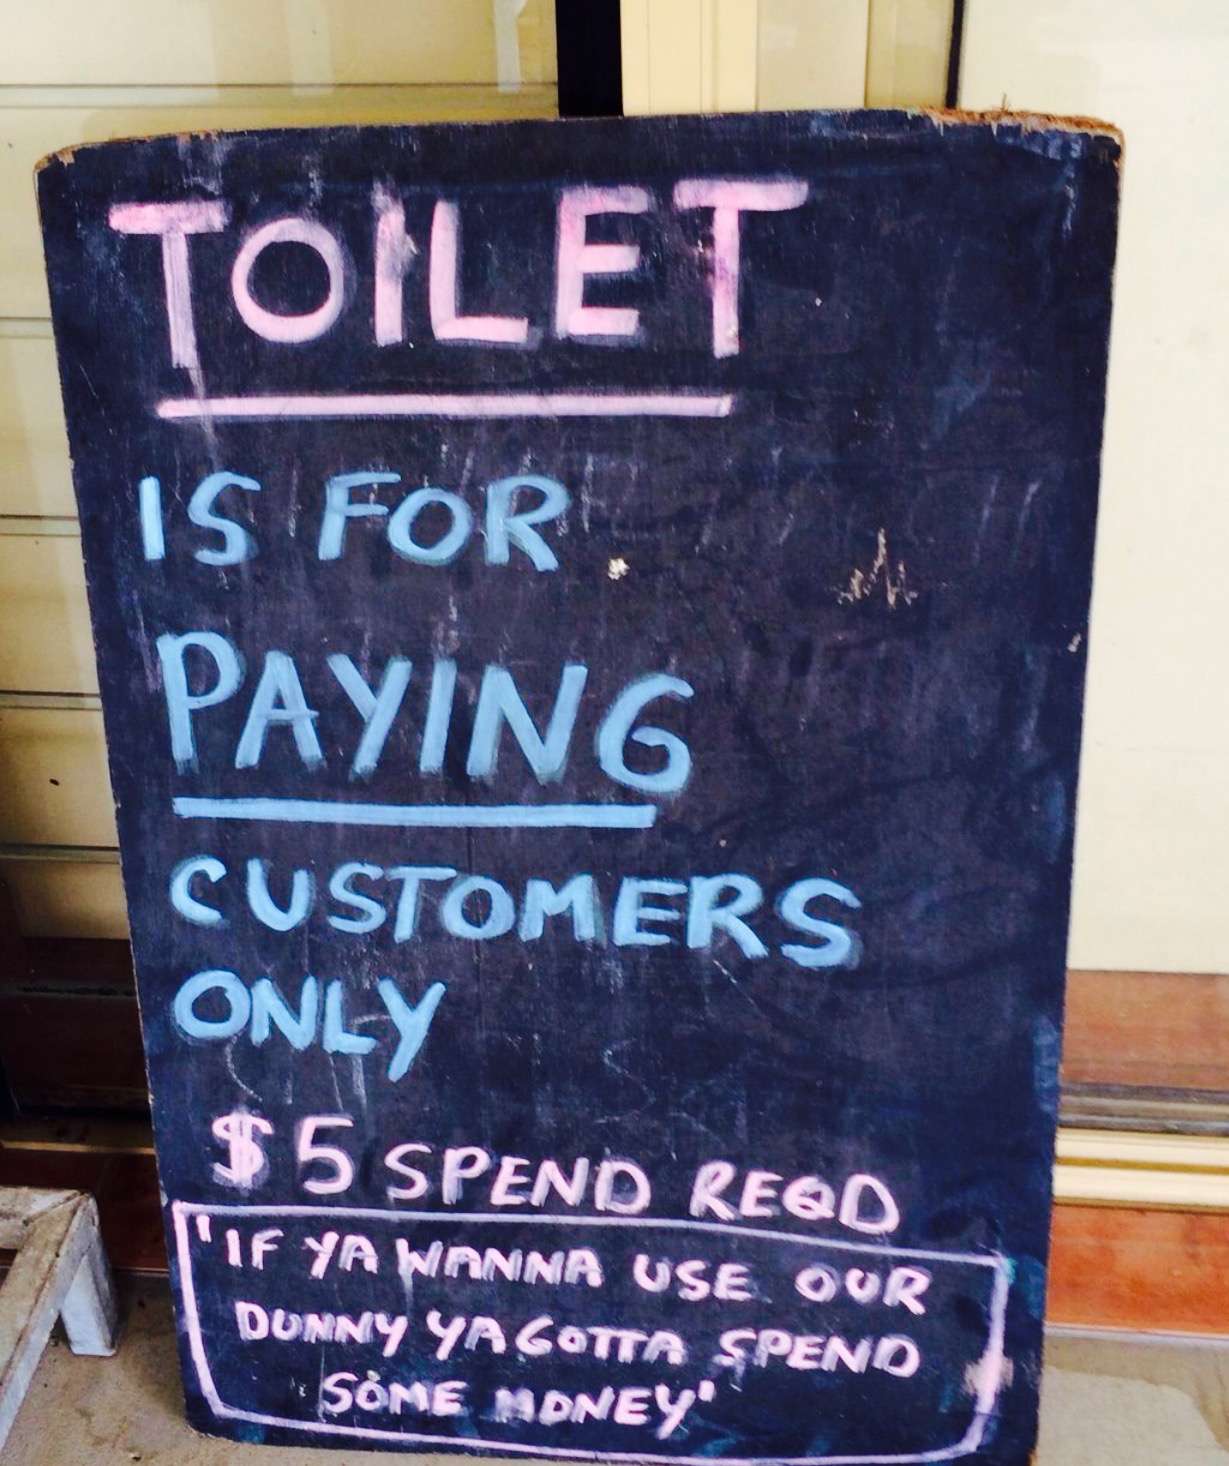 TOILET
IS FOR
PAYING
CUSTOMERS
ONLY
$5 SPEND REQD
"IF YA WANNA USE OUR
DUNNY YA GOTTA SPEND
SOME MONEY"